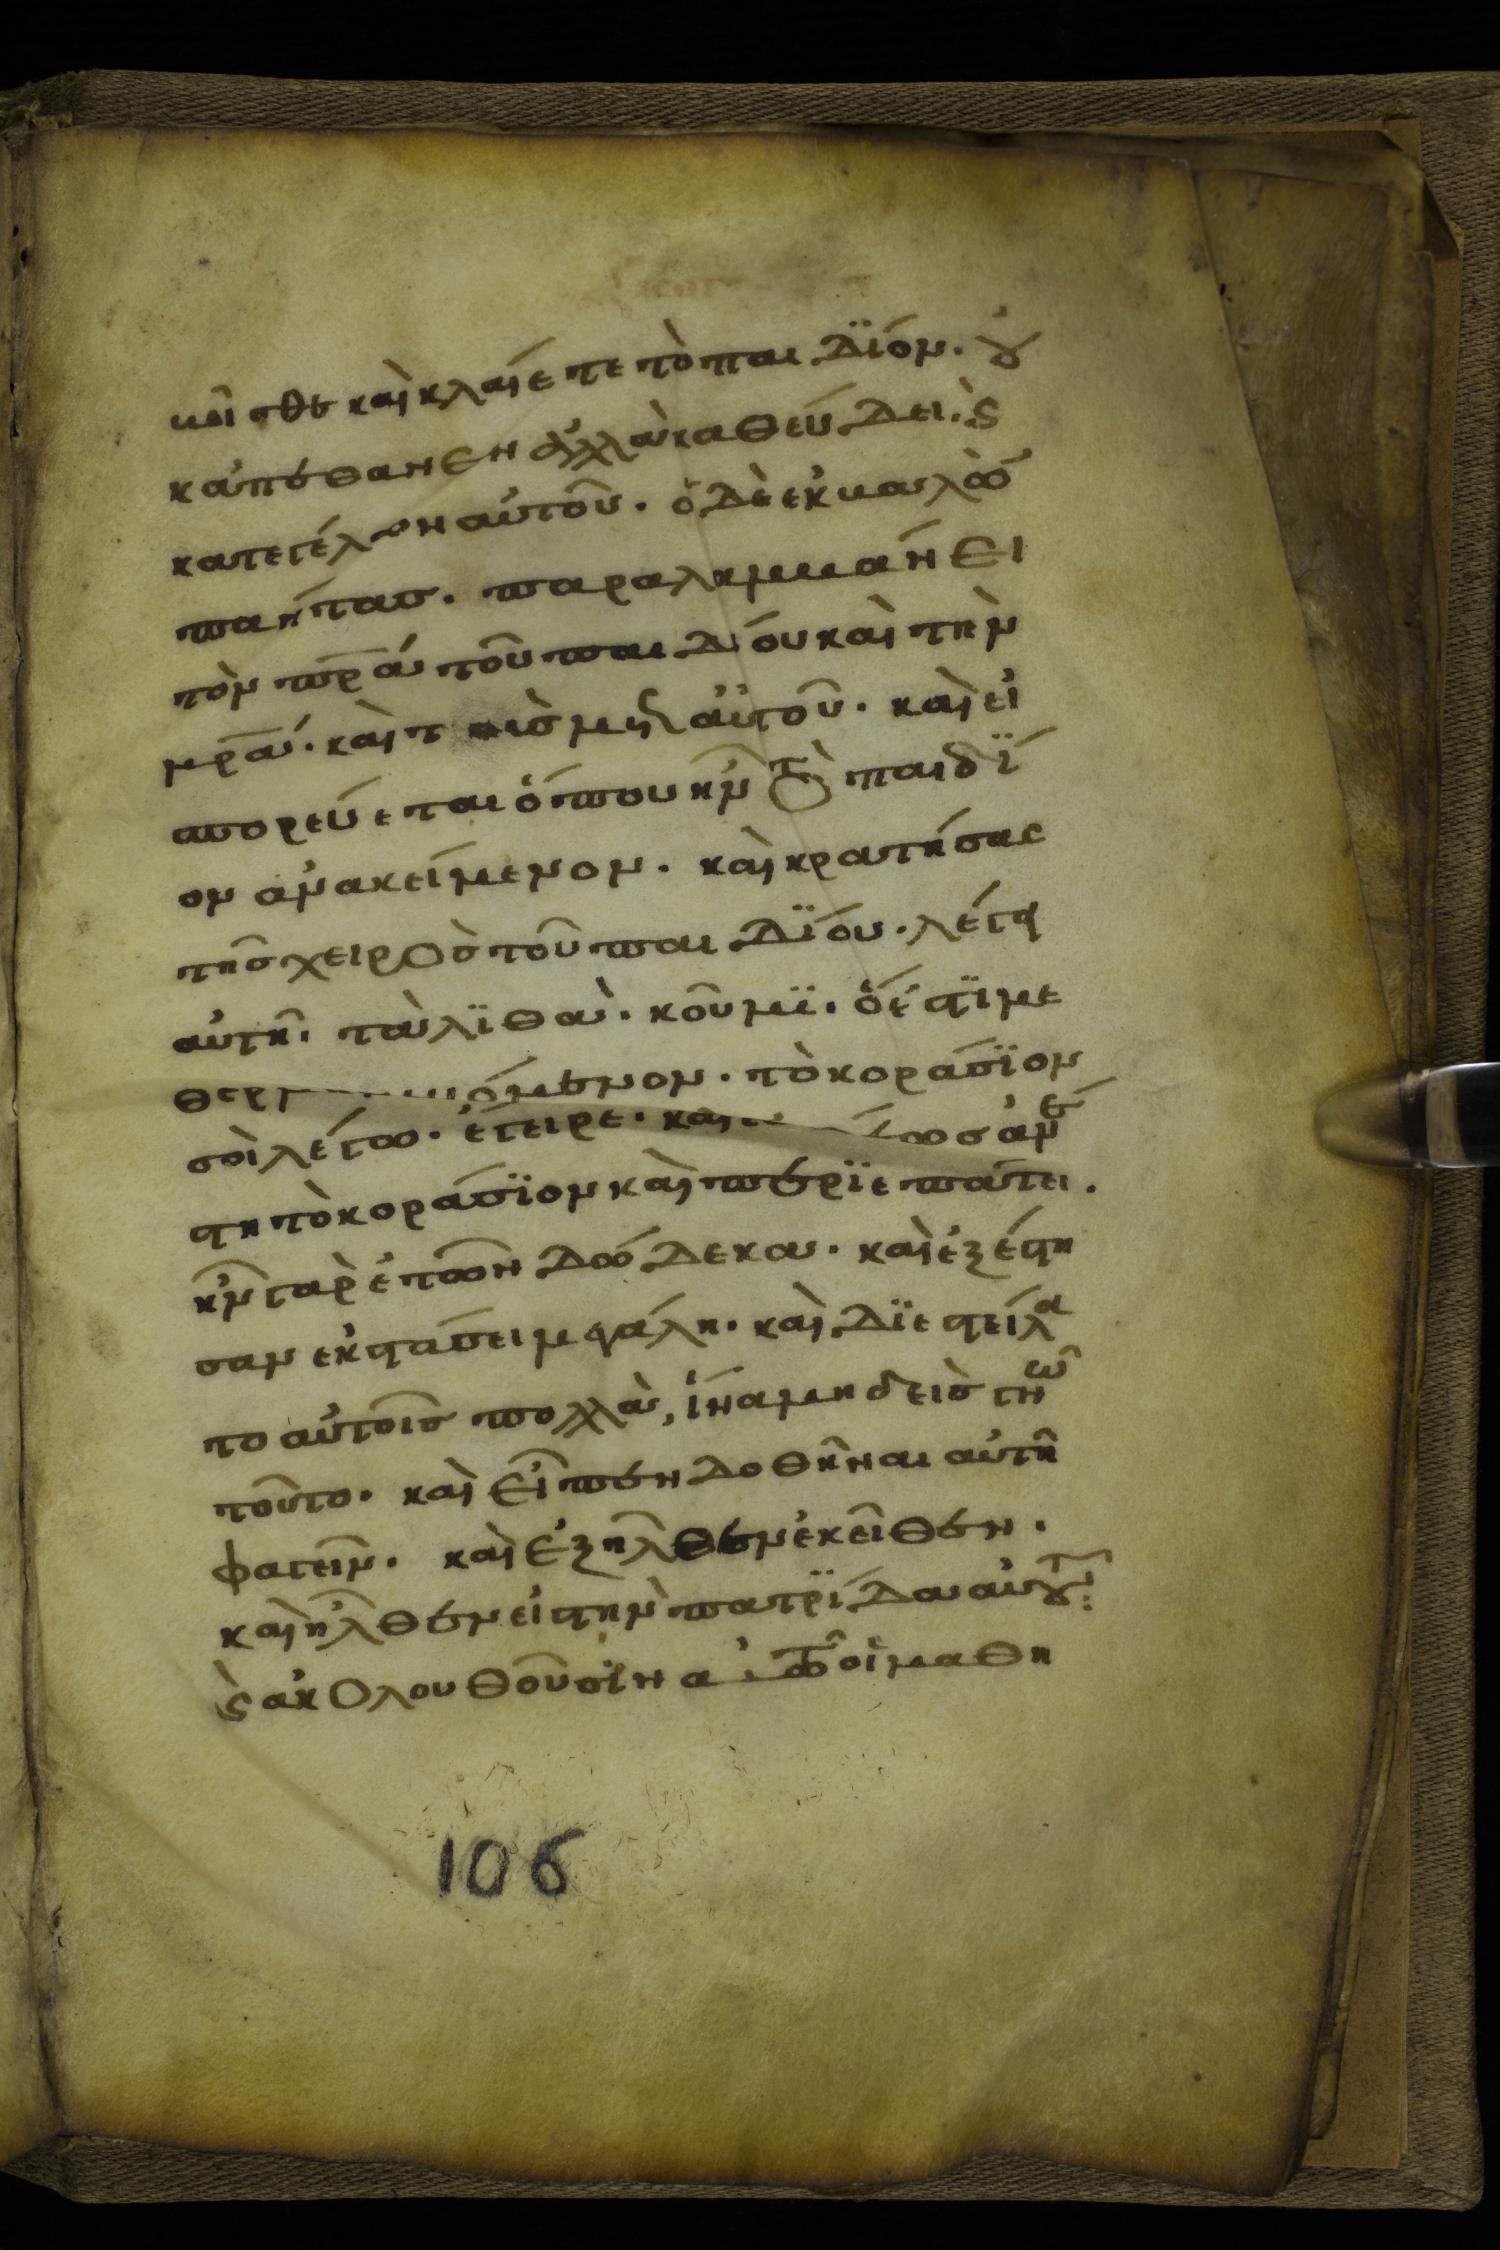 βεῖσθε καὶ κλαίετε τὸ παιδΐον. οὐ
κ ἀπέθανεν ἀλλὰ καθεύδει. ϗ
κατεγέλων αὐτοῦ. ὁ δὲ ἐκβαλὼ
πάντας. παραλαμβάνει
τὸν πρ̅α τοῦ παιδίου καὶ τὴν
μρ̅α. καὶ τ μετ αὐτοῦ. καὶ εἰ
πορεύεται ὅπου ἦν τὸ παιδΐ
ον ἀνακείμενον. καὶ κρατήσας
τῆς χειρὸς τοῦ παιδΐου. λέγει
αὐτῆ. ταλϊθὰ. κοῦμϊ. ὅ ἐστϊ με
νον. τὸ κοράσϊον
σοὶ λέγω. ἔγειρε. καὶ ἀνέ
στη τὸ κοράσϊον καὶ περϊεπάτει.
ἦν γὰρ ἐτῶν δώδεκα. καὶ ἐξέστη
σαν ἐκστάσει μεγάλη. καὶ δϊεστείλα
το αὐτοῖς πολλὰ, ἵνα μηδεὶς γνῶ
τοῦτο. καὶ εἶπεν δοθῆναι αὐτῆ
φαγεῖν. καὶ ἐξῆλθεν ἐκεῖθεν.
καὶ ἦλθεν εἰς τὴν πατρΐδα αὐτοῦ:
ϗ ἀκολουθοῦσϊν αὐτῶ οἱ μαθη
106